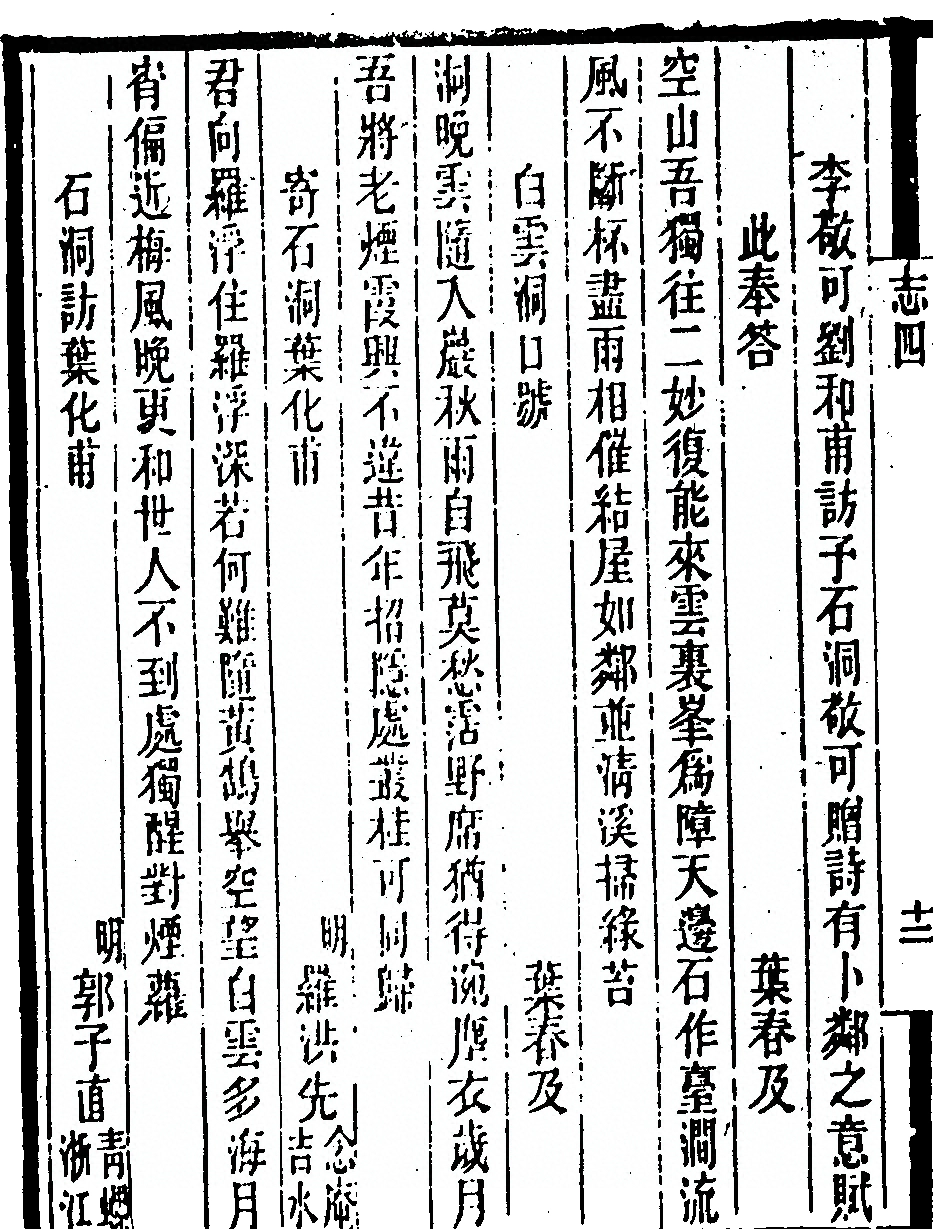 志四
十二
李敬可劉和甫訪予石洞敬可贈詩有卜鄰之意賦
此奉答 葉春及
空山吾獨往二妙復能來雲裏峯爲障天邊石作臺澗流
風不斷杯盡雨相催結屋如鄰並淸溪掃綠苔
白雲洞口號 葉春及
洞晚雲隨入巖秋雨自飛莫愁霑野席猶得浣塵衣歲月
吾將老煙霞興不違昔年招隱處叢桂可同歸
寄石洞葉化甫 明羅洪先念庵吉水
君向羅浮住羅浮深若何難隨黃鵠舉空望白雲多海月
宵偏近梅風晚更和世人不到處獨醒對煙蘿
石洞訪葉化甫 明郭子直靑螺浙江